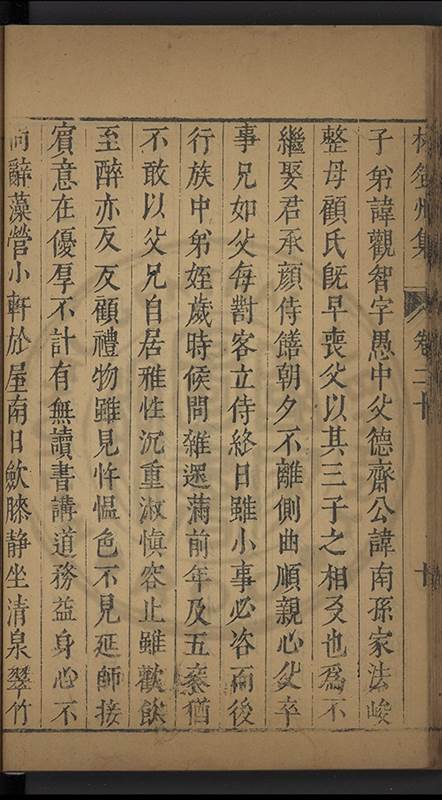 林登州集 卷二十 十
子弟諱觀智字愚中父德齋公諱南孫家法峻
整母顧氏旣早喪父以其三子之相友也爲不
繼娶君承顏侍饍朝夕不離側曲順親心父卒
事兄如父每對客立侍終日雖小事必咨而後
行族中弟姪歲時候問雜遝滿前年及五袠猶
不敢以父兄自居雅性沉重淑愼容止雖歡飲
至醉亦反反顧禮物雖見忤慍色不見延師接
賓意在優厚不計有無讀書講道務益身心不
尚辭藻營小軒於屋南日歛膝靜坐清泉翠竹